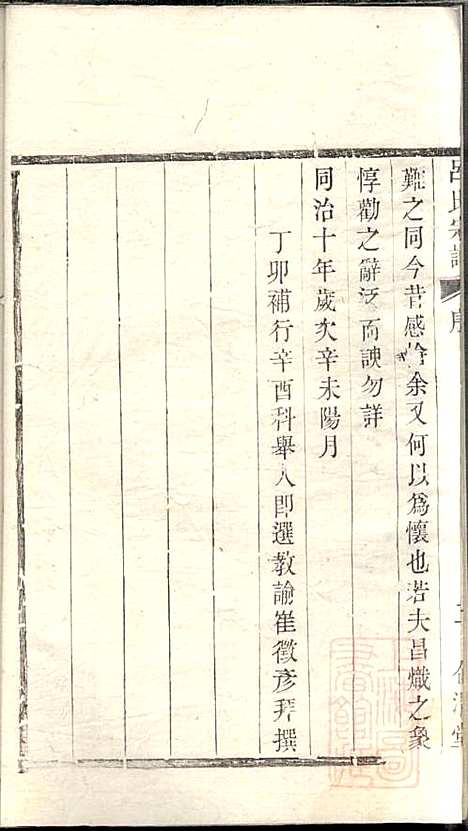 呂氏宗譜 序
難之同今昔感怆余又何以爲懷也若夫昌熾之象
惇勸之辭泛而諛勿詳
同治十年歲次辛未陽月
丁卯補行辛酉科舉人即選教諭崔徵彥拜撰